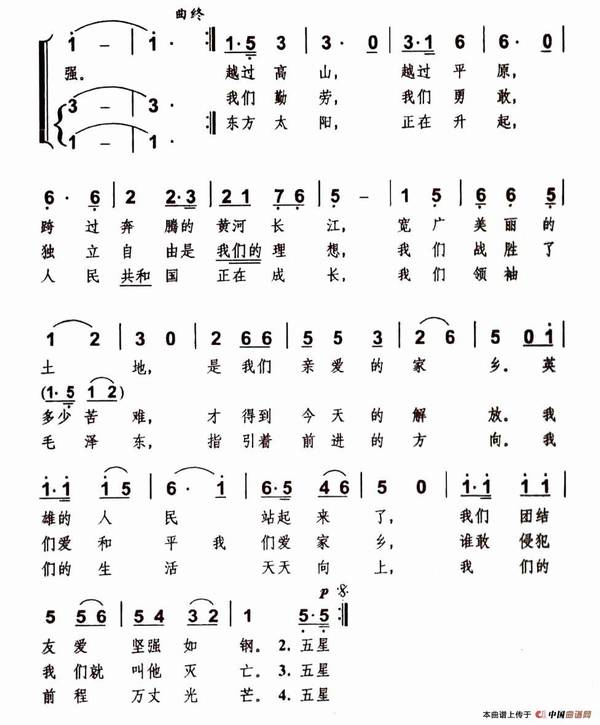 曲终
1 – | 1 · :| 1·5 3 | 3· 0 | 3·1 6 | 6· 0 |
强。 越过 高 山， 越过 平 原，
我们 勤 劳， 我们 勇 敢，
3 – | 3 ·
1 – | 1 · :| 东方 太 阳， 正在 升 起，
6 · 6 | 2 2·3 | 21 76 | 5 – | 1 5 | 6 6 5 |
跨 过 奔 腾的 黄河 长 江， 宽 广 美 丽 的
独 立 自 由是 我们的 理 想， 我 们 战 胜 了
人 民 共和 国 正在 成 长， 我 们 领 袖
1 2 | 3 0 | 2 66 | 5 5 3 | 2 6 | 5 | 0 1 |
土 地， 是 我们 亲 爱 的 家 乡。 英
(1·5 1 2)
多少 苦 难， 才 得到 今 天 的 解 放。 我
毛 泽 东， 指 引着 前 进 的 方 向。 我
1·1 1 5 | 6 · 1 | 6·5 4 6 | 5 0 | 1·1 1 1 |
雄的 人 民 站起 来 了， 我们 团结
们爱 和 平 我 们爱 家 乡， 谁敢 侵犯
们的 生 活 天天 向 上， 我 们的
p 𝄋
5 5 6 | 54 3 2 | 1 5·5 :|
友 爱 坚强 如 钢。 2. 五星
我 们就 叫他 灭 亡。 3. 五星
前 程 万丈 光 芒。 4. 五星
本曲谱上传于 中国曲谱网